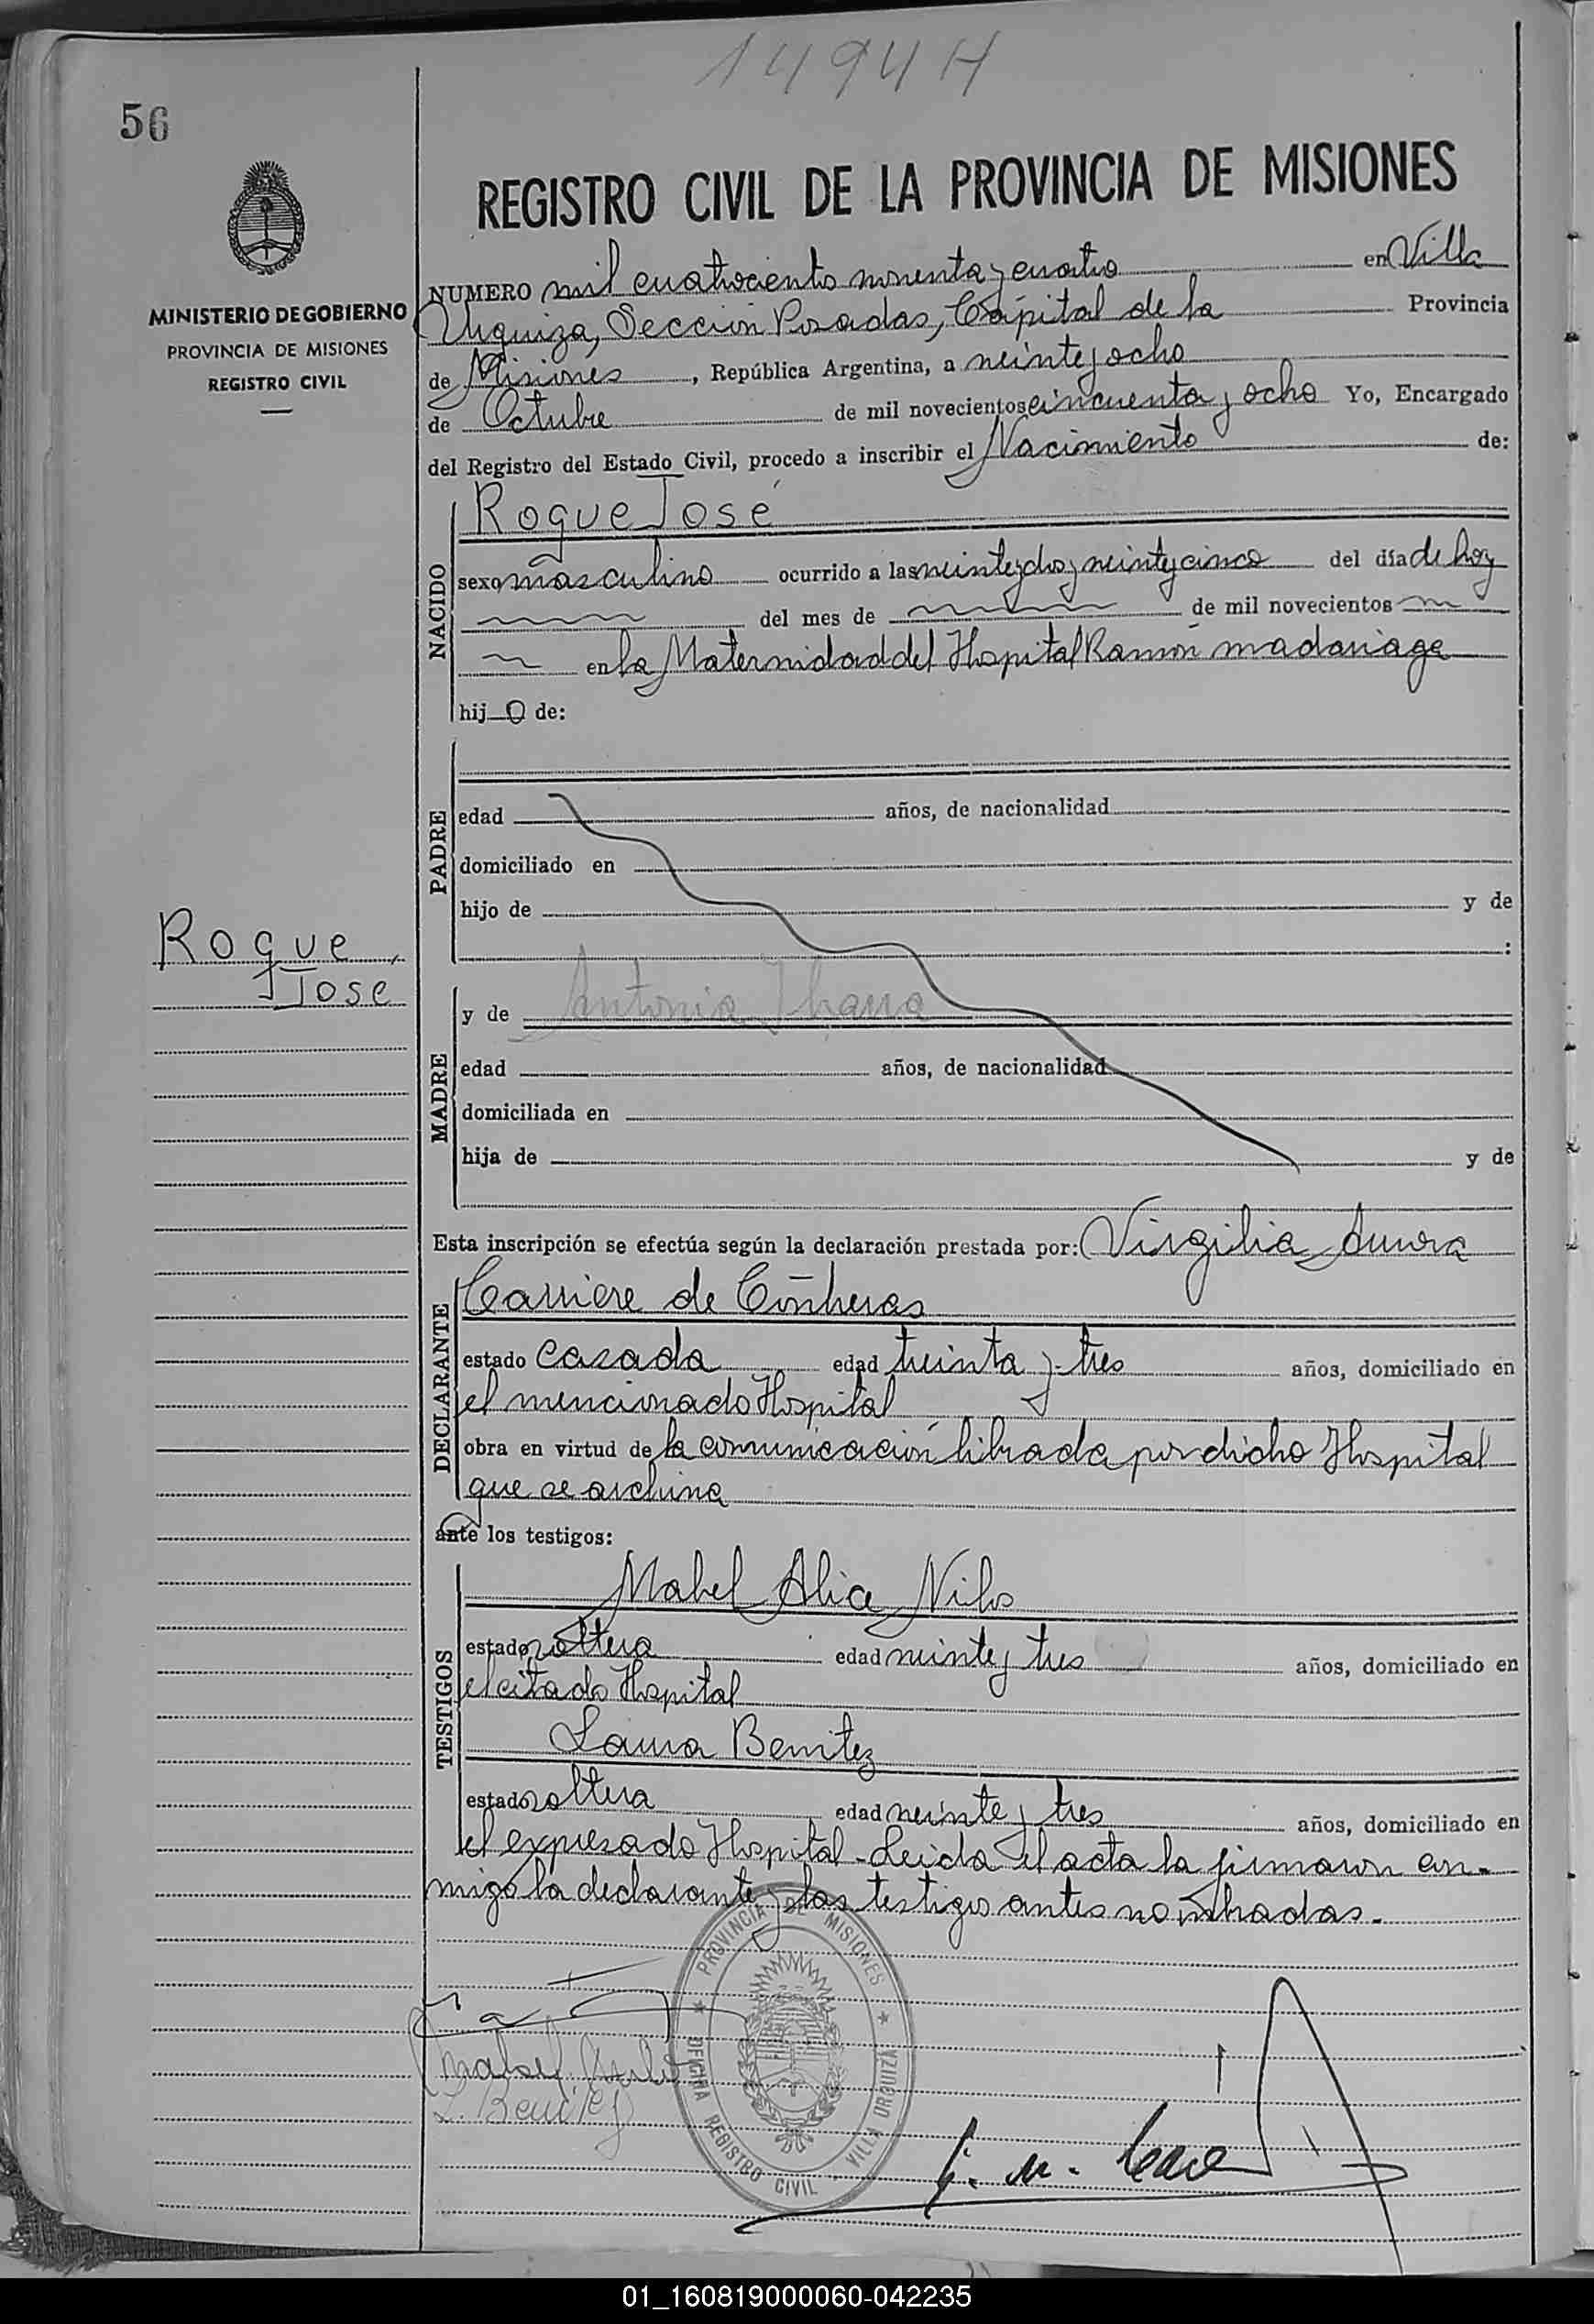 1494 H
56
REGISTRO CIVIL DE LA PROVINCIA DE MISIONES
MINISTERIO DE GOBIERNO
PROVINCIA DE MISIONES
REGISTRO CIVIL
NUMERO mil cuatrociento noventa y cuatro en Villa
Urquiza, Sección Posadas, Cápital de la Provincia
de Misiones, República Argentina, a veinte y ocho
de Octubre de mil novecientos cincuenta y ocho Yo, Encargado
del Registro del Estado Civil, procedo a inscribir el Nacimiento de:
NACIDO
Roque José
sexo masculino ocurrido a las veinte y dos y veinte y cinco del día de hoy
del mes de de mil novecientos
en la Maternidad del Hospital Ramón madariaga
hijo de:
PADRE
edad años, de nacionalidad
domiciliado en
hijo de y de
:
Roque
Jose
MADRE
y de Antonia
edad años, de nacionalidad
domiciliada en
hija de y de
Esta inscripción se efectúa según la declaración prestada por: Virgilia
DECLARANTE
Carriere de Contreras
estado casada edad treinta y tres años, domiciliado en
el mencionado Hospital
obra en virtud de la comunicación librada por dicho Hospital
que se archiva
ante los testigos:
TESTIGOS
Mabel Alia
estado soltera edad veinte y tres años, domiciliado en
el citado Hospital
Laura Benitez
estado soltera edad veinte y tres años, domiciliado en
el expresado Hospital - Leida el acta la firmaron con-
migo la declarante y las testigos antes nombradas.-
PROVINCIA DE MISIONES
OFICINA REGISTRO CIVIL - VILLA URQUIZA
L. Benitez
01_160819000060-042235